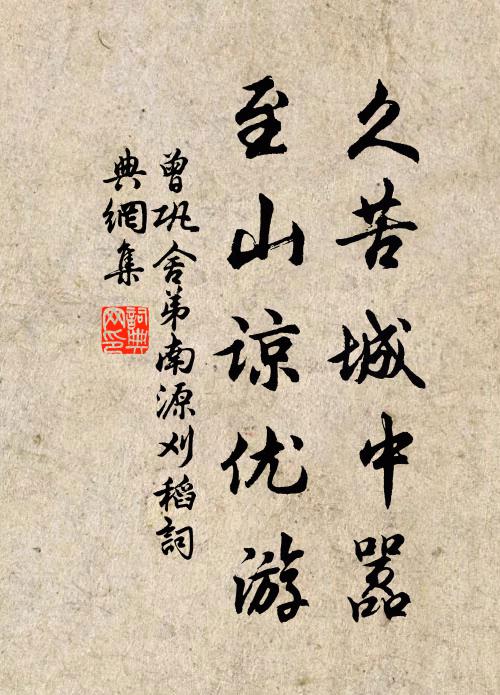 久苦城中嚣
至山谅优游
曾巩舍弟南源刈稻詞
典網集
詞典
网印